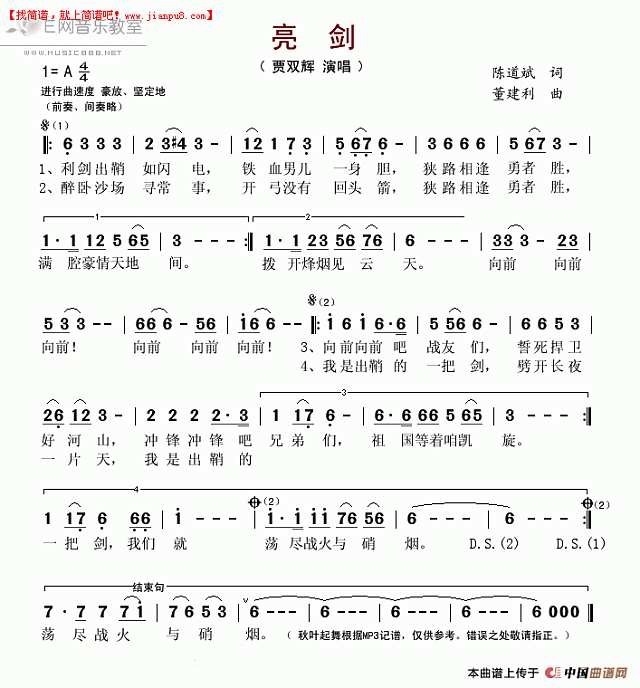 【找简谱，就上简谱吧！www.jianpu8.com】
E网音乐教室
WWW.MUSIC8888.NET
亮 剑
（ 贾双辉 演唱 ）
1=A 4/4
陈道斌 词
进行曲速度 豪放、坚定地
董建利 曲
（前奏、间奏略）
𝄋(1)
‖: 6 3 3 3 | 2 3 #4 3 - | 1 2 1 7 3 | 5 6 7 6 - | 3 6 6 6 | 5 5 3 2 - |
1、利剑出鞘 如闪 电， 铁 血男儿 一身 胆， 狭路相逢 勇者 胜，
2、醉卧沙场 寻常 事， 开 弓没有 回头 箭， 狭路相逢 勇者 胜，
1 2
1· 1 12 5 65 | 3 - - - :‖ 1· 1 23 56 76 | 6 - - - | 33 3 - 23 |
满 腔豪情天地 间。 拨 开烽烟见 云 天。 向前 向前
𝄋(2)
5 3 3 - - | 66 6 - 56 | 16 6 - - ‖: 1 6 1 6·6 | 5 66 6 - | 6 6 5 3 |
向前！ 向前 向前 向前！ 3、向前向前 吧 战友 们， 誓死捍卫
4、我是出鞘 的 一把 剑， 劈开长夜
3
26 12 3 - | 2 2 2 2·3 | 1 17 6 - | 6·6 66 56 65 | 3 - - - :‖
好 河 山， 冲锋冲锋 吧 兄弟 们， 祖 国等着咱凯 旋。
一 片 天， 我是出鞘 的
4 (2) (2)
1 17 6 66 | 1 - - - | 1· 1 11 76 56 | 6 - - - | 6 - - - :‖
一把 剑，我们 就 荡 尽战火与 硝 烟。 D.S.(2) D.S.(1)
结束句
7· 7 7 71 | 7 6 5 3 | 6 - - - | 6 - - - | 6 - - - | 6 0 0 0 ‖
荡 尽战 火 与 硝 烟。（ 秋叶起舞根据MP3记谱，仅供参考。错误之处敬请指正。）
本曲谱上传于 中国曲谱网